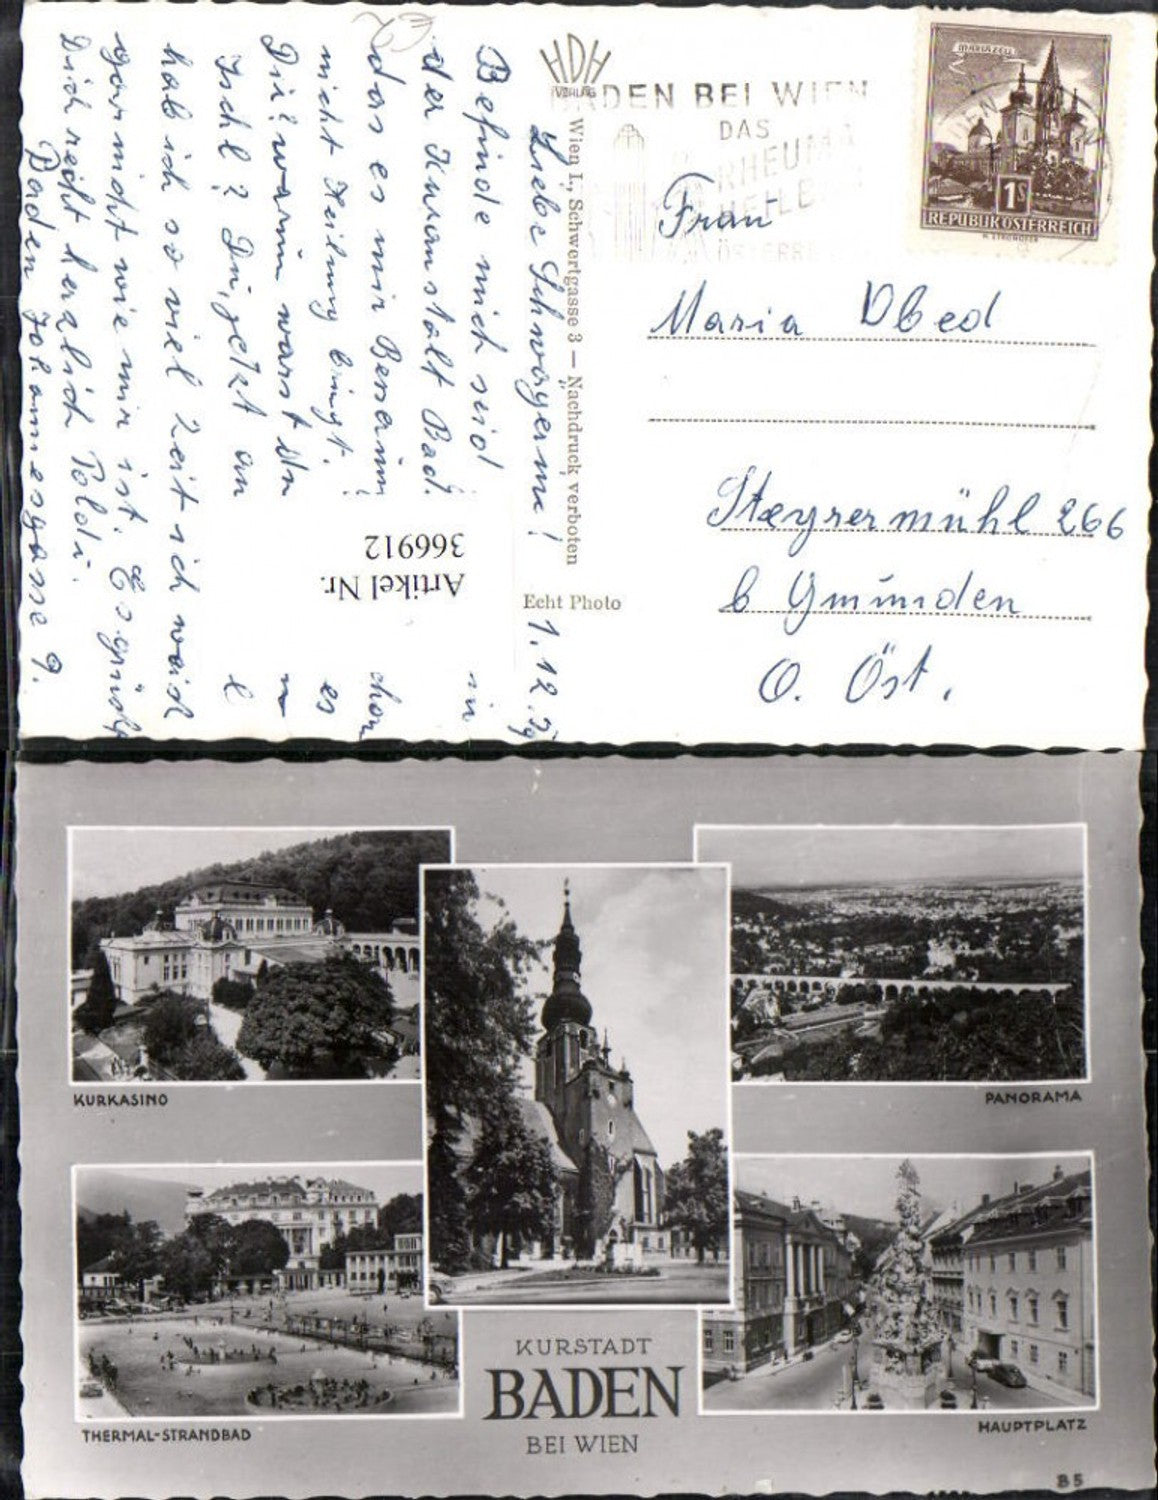 HDH
VERLAG
BADEN BEI WIEN
DAS
RHEUMA
HEILBAD
MARIAZELL
1S
REPUBLIK ÖSTERREICH
Wien I., Schwertgasse 3 — Nachdruck verboten
Echt Photo
Artikel Nr.
366912
Frau
Maria Obed
Steyrermühl 266
b Gmünden
O. Öst.
1.12.
Liebe Schwägerin!
Befinde mich seid in
der Kuranstalt Bad.
das es mir Besserung
nicht Heilung bringt. es
Du! warum warst du
Ischl? Du, jetzt an
hab ich so viel Zeit ich weis
garnicht wie mir ist. Es grüßt
Dich recht herzlich Poldi.
Baden Johannesgasse 9.
KURKASINO
PANORAMA
THERMAL-STRANDBAD
KURSTADT
BADEN
BEI WIEN
HAUPTPLATZ
B5